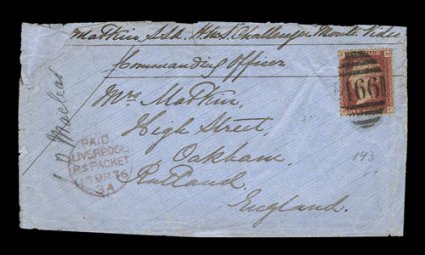 Matkin S.S.A. H.M.S. Challenger Monte Video
Commanding Officer
Maclear
Mrs. Matkin,
High Street,
Oakham,
Rutland
England.
PAID
LIVERPOOL
BR PACKET
MR 76
166
143